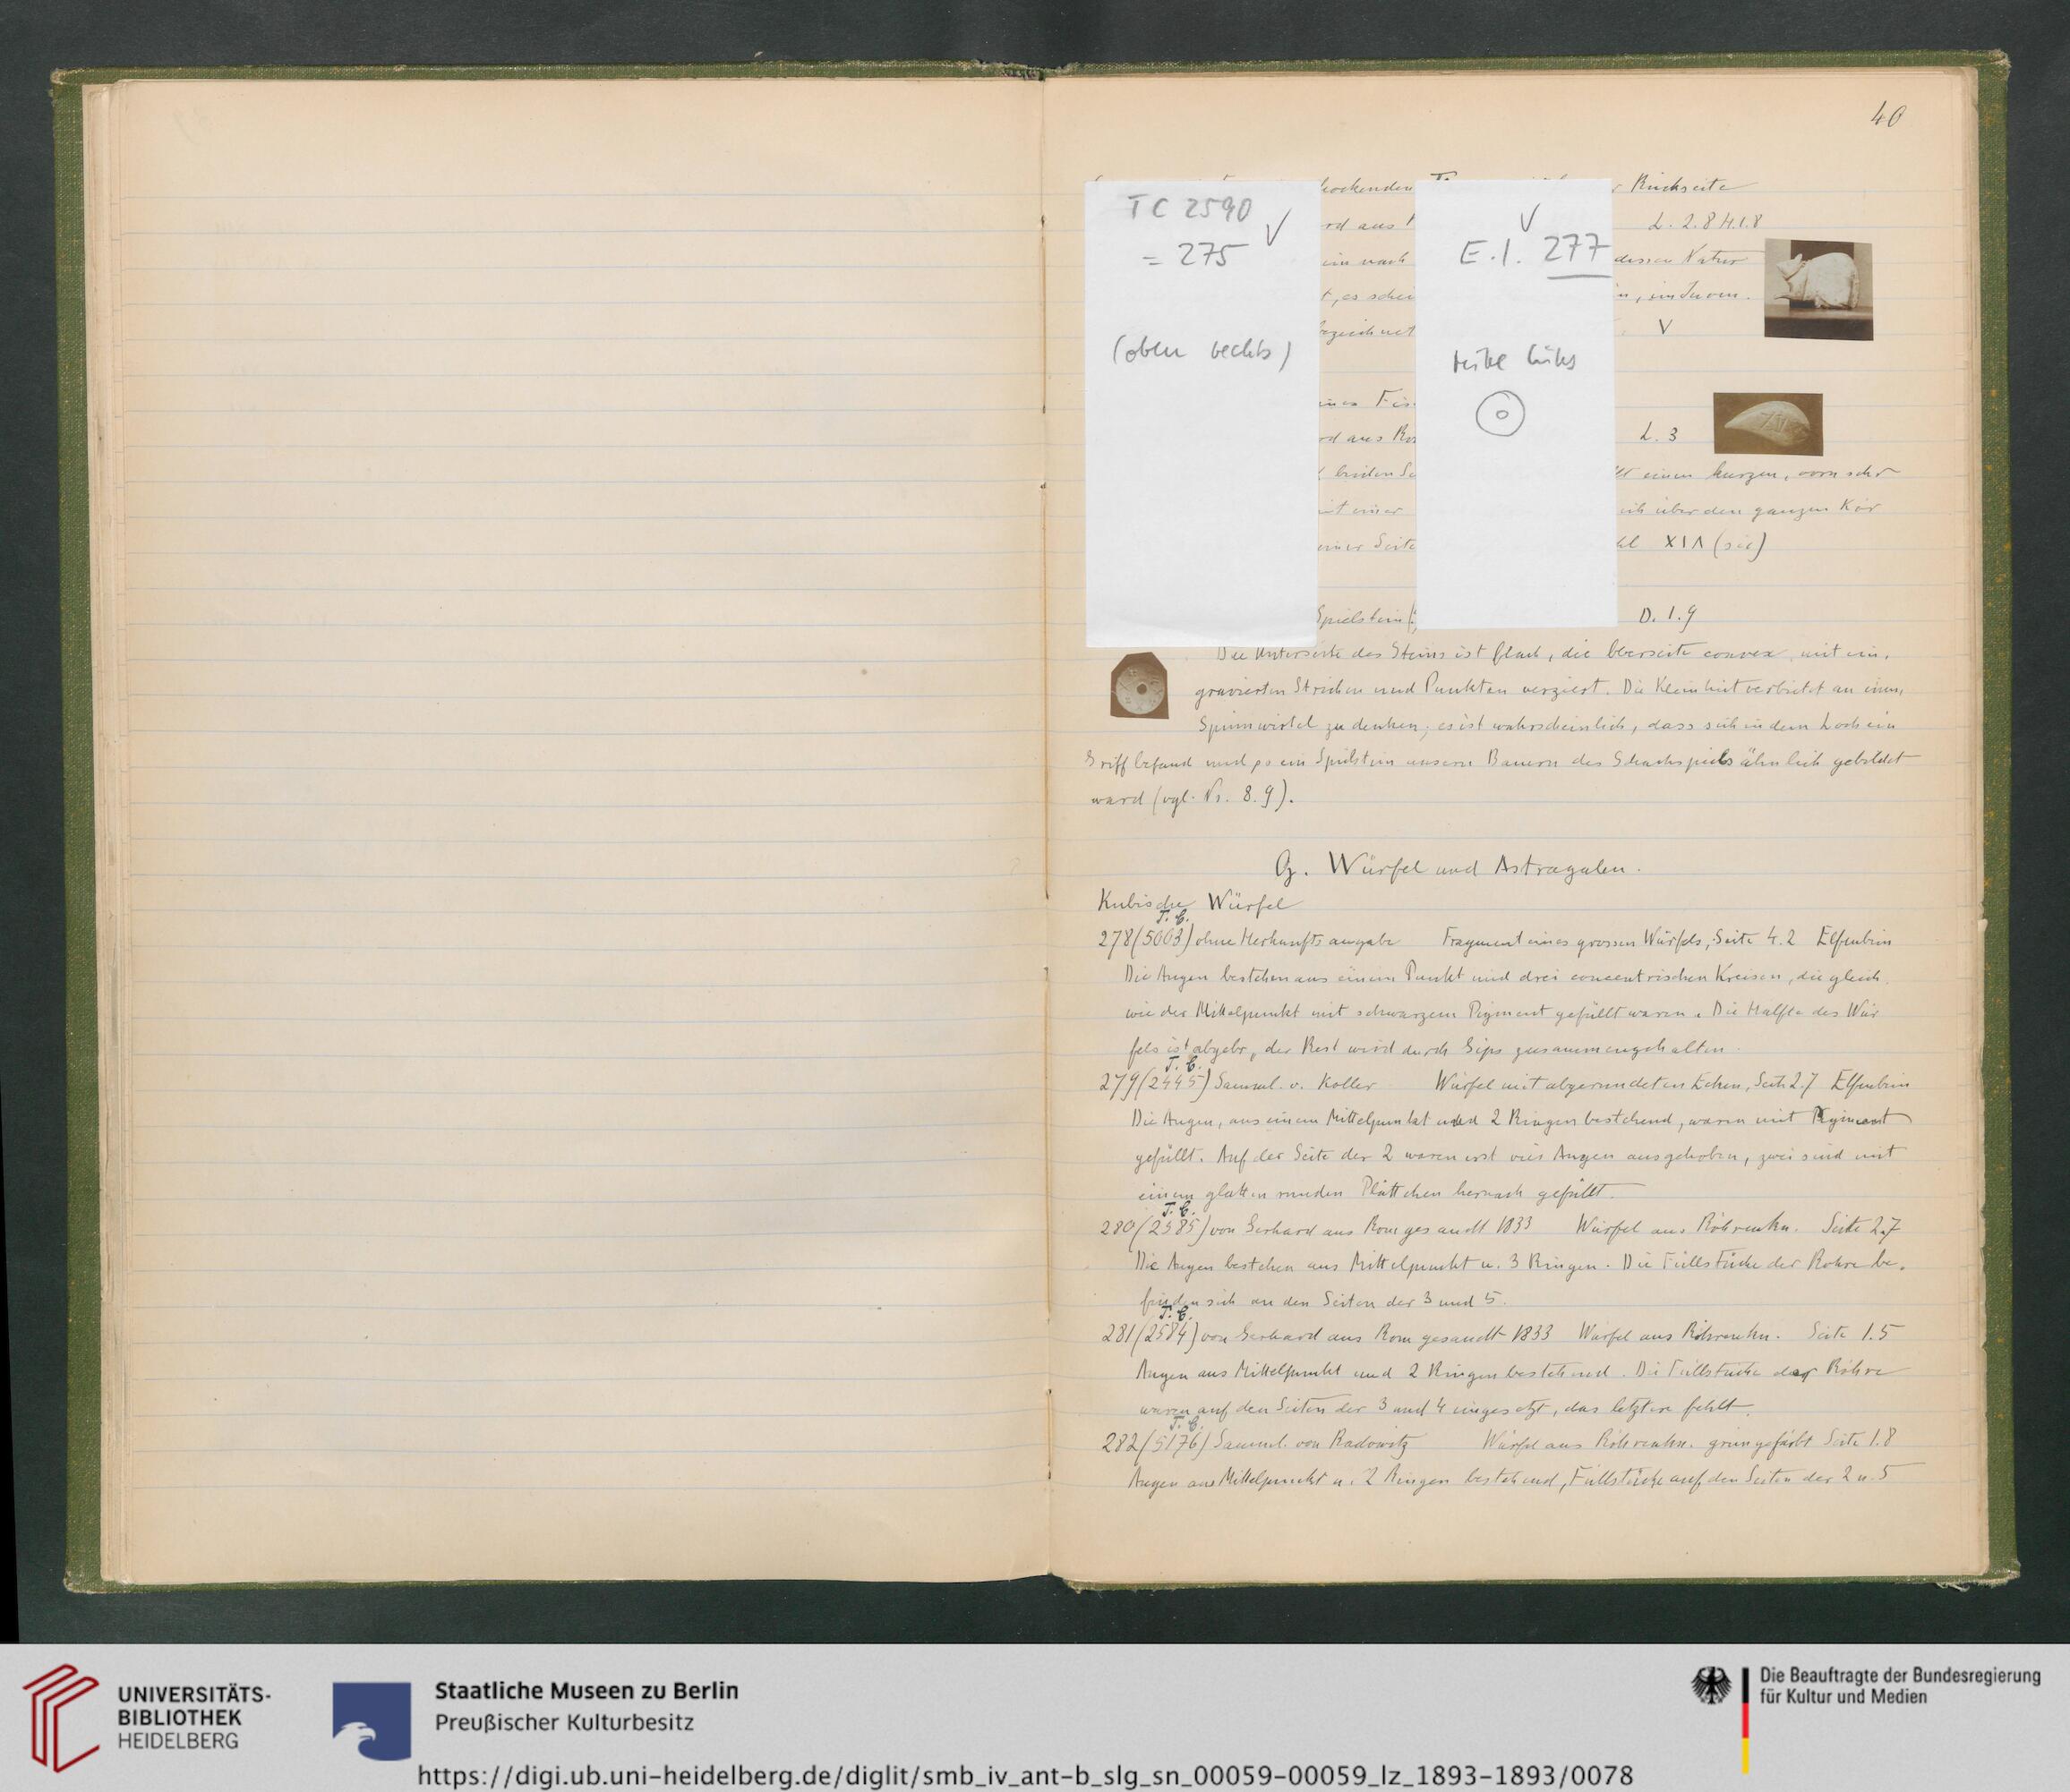 40
TC 2590 V
= 275
(oben rechts)
V
E.I. 277
Reihe links
hockenden Rückseite
rd aus L. 2.8 H. 1.8
ein nach dessen Natur
t, es schei
bezeichnet V
eines Fis
rd aus Ro L. 3
beiden Se einen kurzen, vorn schr
mit einer sich über den ganzen Kör
einer Seite XIΛ (sic)
Spielstein (? D. 1.9
Die Unterseite des Steins ist flach, die Oberseite convex, mit ein,
gravierten Strichen und Punkten verziert. Die Kleinheit verbietet an einen
Spinnwirtel zu denken; es ist wahrscheinlich, dass sich in dem Loch ein
Griff befand und so ein Spielstein unsern Bauern des Schachspiels ähnlich gebildet
ward (vgl. Nr. 8.9).
G. Würfel und Astragalen.
Kubische Würfel
T. C.
278 (5003) ohne Herkunftsangabe Fragment eines grossen Würfels, Seite 4.2 Elfenbein
Die Augen bestehen aus einem Punkt und drei concentrischen Kreisen, die gleich
wie der Mittelpunkt mit schwarzem Pigment gefüllt waren. Die Hälfte des Wür
fels ist abgebr., der Rest wird durch Gips zusammengehalten.
T. C.
279 (2445) Samml. v. Koller Würfel mit abgerundeten Ecken, Seite 2.7 Elfenbein
Die Augen, aus einem Mittelpunkt und 2 Ringen bestehend, waren mit Pigment
gefüllt. Auf der Seite der 2 waren erst vier Augen ausgehoben, zwei sind mit
einem glatten runden Plättchen hernach gefüllt.
T. C.
280 (2585) von Gerhard aus Rom gesandt 1833 Würfel aus Röhrenkn. Seite 2.7
Die Augen bestehen aus Mittelpunkt u. 3 Ringen. Die Füllstücke der Röhre be,
finden sich an den Seiten der 3 und 5.
T. C.
281 (2584) von Gerhard aus Rom gesandt 1833 Würfel aus Röhrenkn. Seite 1.5
Augen aus Mittelpunkt und 2 Ringen bestehend. Die Füllstücke der Röhre
waren auf den Seiten der 3 und 4 eingesetzt, das letztere fehlt.
T. C.
282 (5176) Samml. von Radowitz Würfel aus Röhrenkn. grün gefärbt Seite 1.8
Augen aus Mittelpunkt u. 2 Ringen bestehend, Füllstücke auf den Seiten der 2 u. 5
UNIVERSITÄTS-
BIBLIOTHEK
HEIDELBERG
Staatliche Museen zu Berlin
Preußischer Kulturbesitz
Die Beauftragte der Bundesregierung
für Kultur und Medien
https://digi.ub.uni-heidelberg.de/diglit/smb_iv_ant-b_slg_sn_00059-00059_lz_1893-1893/0078